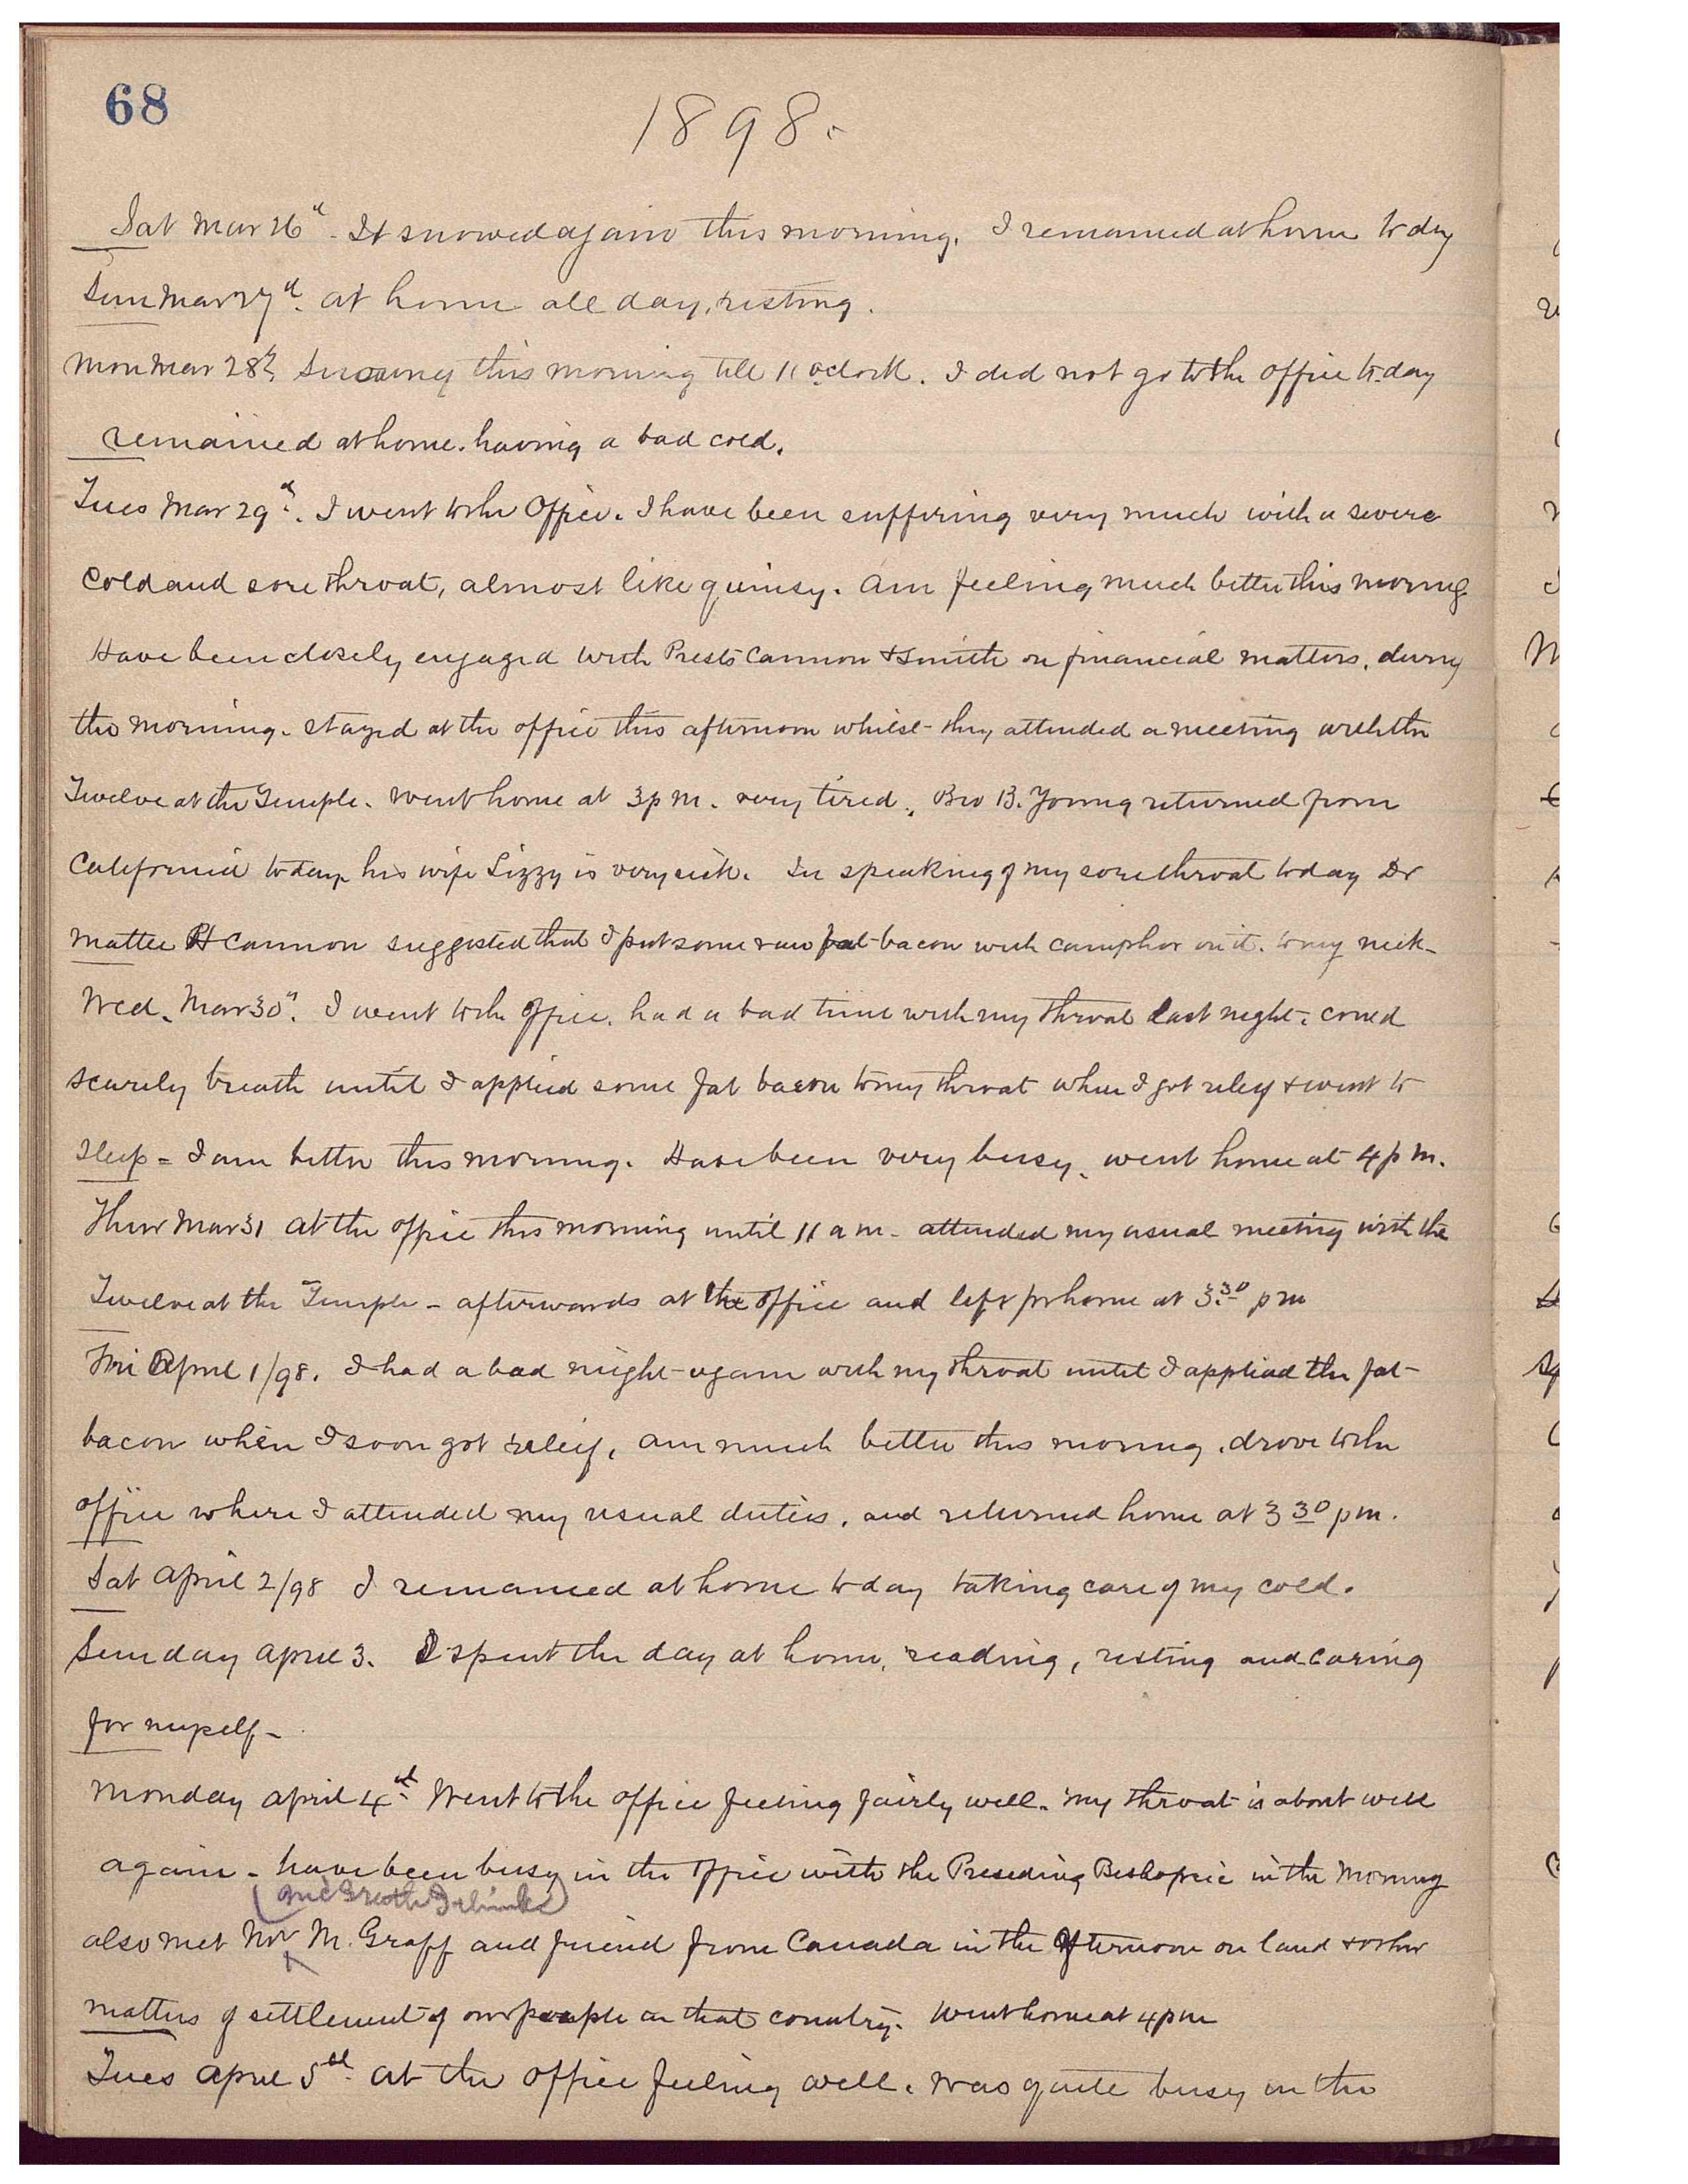 68
1898.
Sat Mar 26th. It snowed again this morning. I remained at home to day
Sun Mar 27th. at home all day, resting.
Mon Mar 28th Snowing this morning till 11 oclock. I did not go to the office to-day
remained at home. having a bad cold.
Tues Mar 29th. I went to the Office. I have been suffering very much with a severe
Cold and sore throat, almost like quinsy. Am feeling much better this morning
Have been closely engaged with Prests Cannon & Smith on financial matters, during
the morning. stayed at the office this afternoon whilst they attended a meeting with the
Twelve at the Temple. Went home at 3 p m. very tired. Bro B. Young returned from
California today his wife Lizzy is very sick. In speaking of my sore throat today Dr
Mattie H Cannon suggested that I put some raw fat bacon with camphor on it. to my neck-
Wed. Mar 30th. I went to the Office. had a bad time with my throat last night. could
scarcely breath until I applied some fat bacon to my throat when I got relief & went to
sleep = I am better this morning. Have been very busy, went home at 4 p m.
Thur Mar 31 At the office this morning until 11 a m. attended my usual meeting with the
Twelve at the Temple - afterwards at the office and left for home at 3.30 p m
Fri April 1/98. I had a bad night again with my throat until I applied the fat
bacon when I soon got relief, am much better this morning. drove to the
office where I attended my usual duties, and returned home at 3 30 p m.
Sat April 2/98 I remained at home today taking care of my cold.
Sunday April 3. I spent the day at home, reading, resting and caring
for myself -
Monday April 4th Went to the office feeling fairly well. My throat is about well
again - have been busy in the office with the Preseding Bishopric in the Morning
also met Mr M. Graff and friend from Canada in the Afternoon on land & other
matters of settlement of our people in that country. Went home at 4 pm
Tues April 5th. At the office feeling well. Was quite busy in the